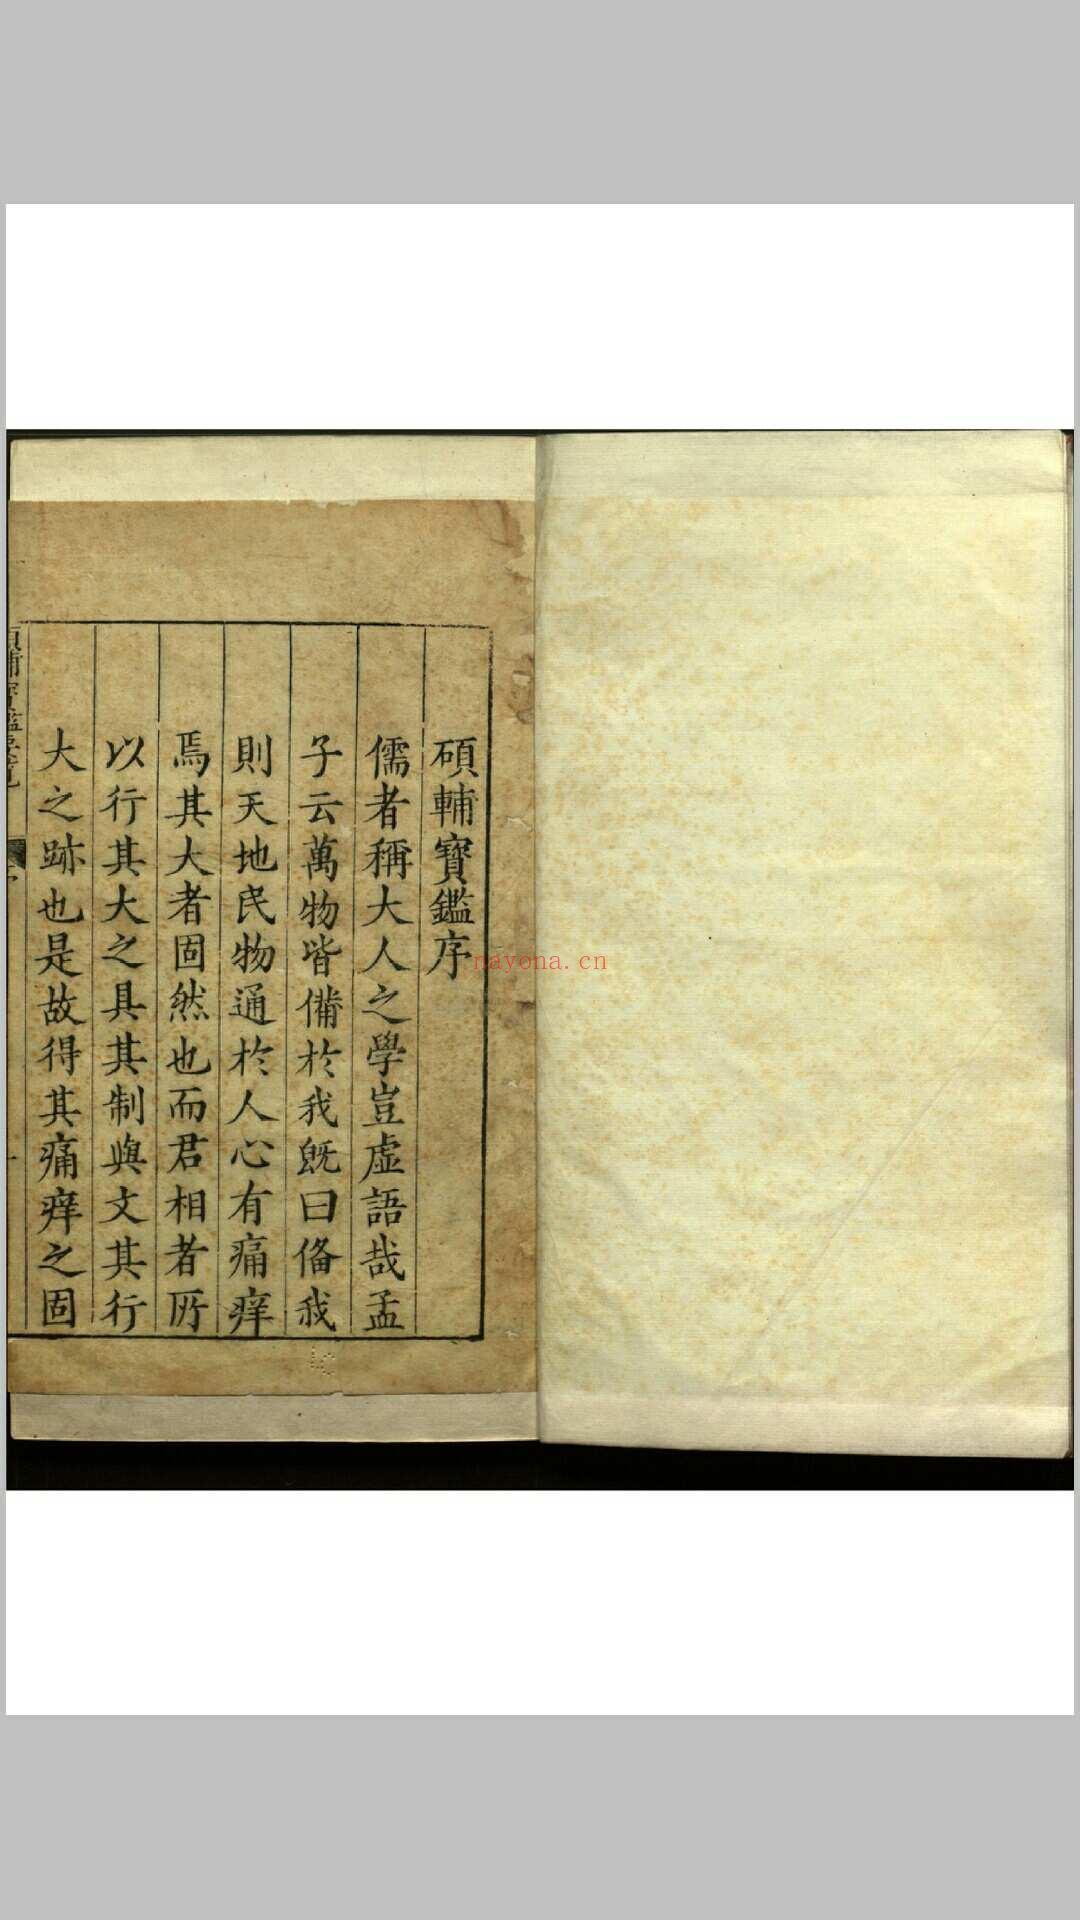 碩輔寶鑑序
儒者稱大人之學豈虛語哉孟
子云萬物皆備於我既曰俻我
則天地民物通於人心有痛痒
焉其大者固然也而君相者所
以行其大之具其制與文其行
大之跡也是故得其痛痒之固
nayona.cn